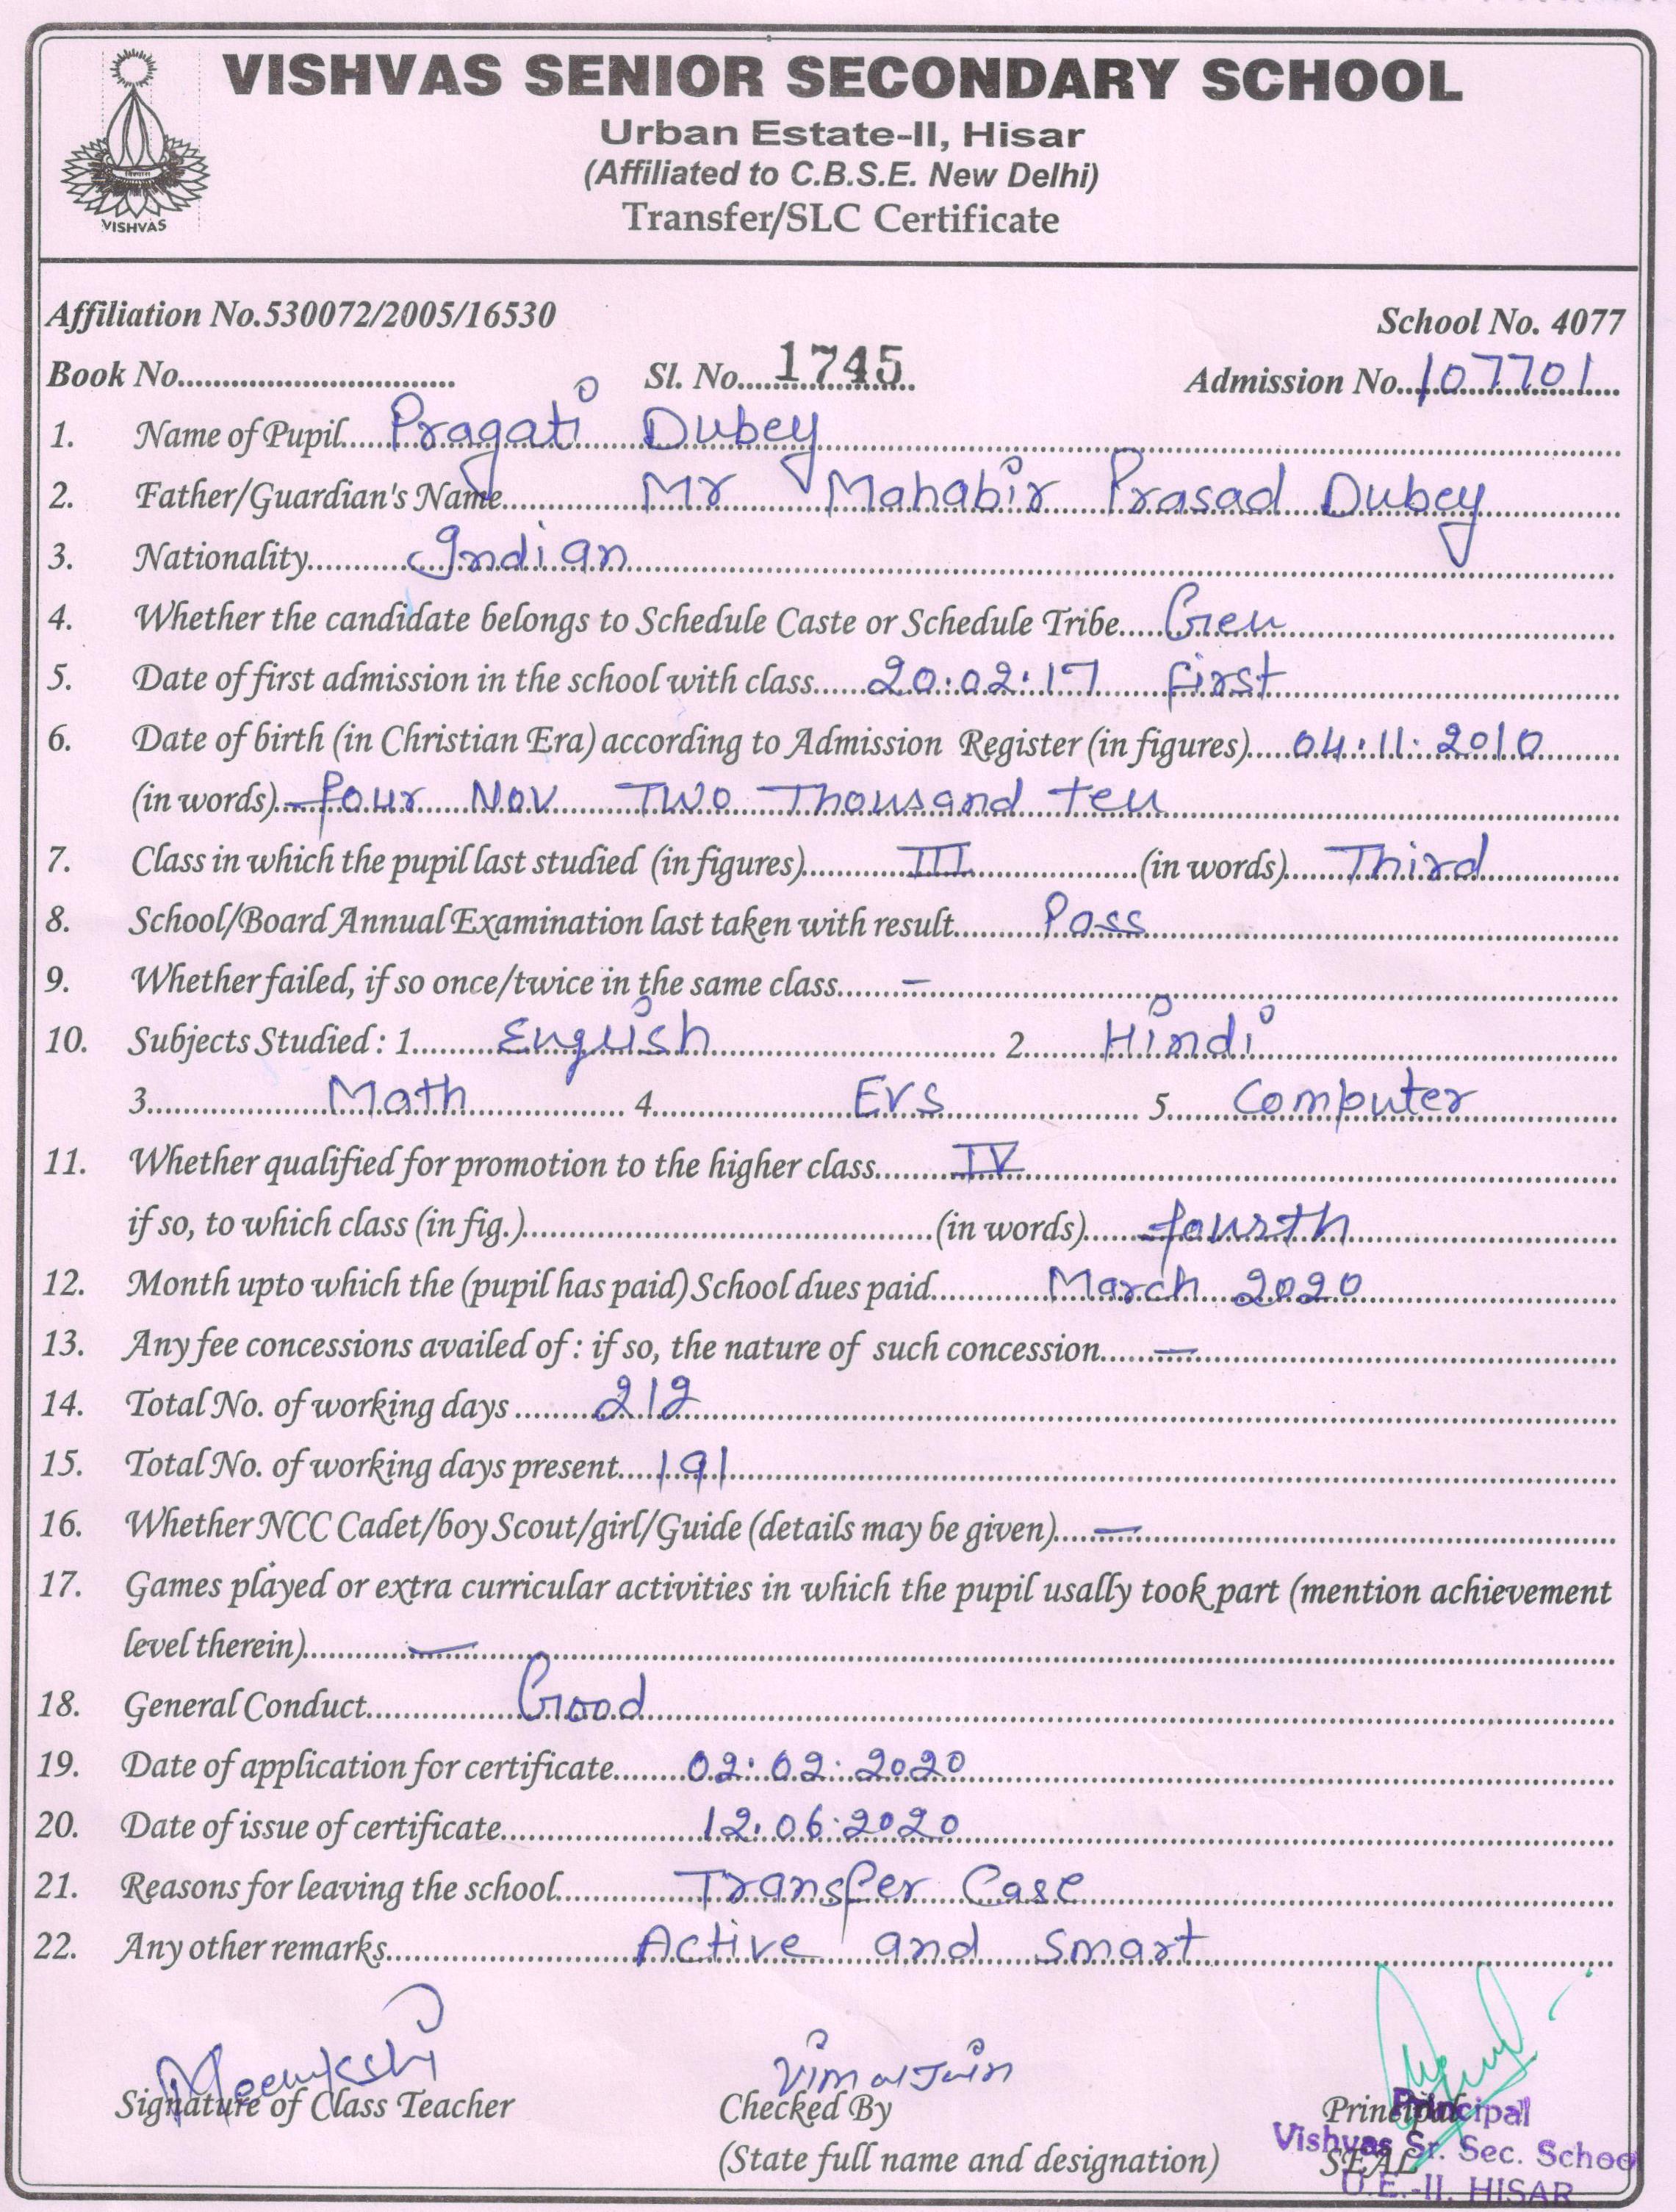 VISHVAS SENIOR SECONDARY SCHOOL
Urban Estate-II, Hisar
(Affiliated to C.B.S.E. New Delhi)
Transfer/SLC Certificate
VISHVAS
Affiliation No.530072/2005/16530 School No. 4077
Book No............................... Sl. No....1745... Admission No...107701...
1. Name of Pupil.....Pragati Dubey
2. Father/Guardian's Name.....Mr Mahabir Prasad Dubey
3. Nationality.....Indian
4. Whether the candidate belongs to Schedule Caste or Schedule Tribe.....Gen
5. Date of first admission in the school with class.....20.02.17 first
6. Date of birth (in Christian Era) according to Admission Register (in figures).....04.11.2010
(in words)...four Nov Two Thousand ten
7. Class in which the pupil last studied (in figures).....III.....(in words).....Third
8. School/Board Annual Examination last taken with result.....Pass
9. Whether failed, if so once/twice in the same class.....–
10. Subjects Studied : 1.....English..... 2.....Hindi
3.....Math..... 4.....EVS..... 5.....Computer
11. Whether qualified for promotion to the higher class.....IV
if so, to which class (in fig.)..........(in words).....fourth
12. Month upto which the (pupil has paid) School dues paid.....March 2020
13. Any fee concessions availed of : if so, the nature of such concession.....—
14. Total No. of working days.....212
15. Total No. of working days present.....191
16. Whether NCC Cadet/boy Scout/girl/Guide (details may be given).....—
17. Games played or extra curricular activities in which the pupil usally took part (mention achievement
level therein).....—
18. General Conduct.....Good
19. Date of application for certificate.....02.02.2020
20. Date of issue of certificate.....12.06.2020
21. Reasons for leaving the school.....Transfer Case
22. Any other remarks.....Active and Smart
Meenakshi Vimal Jain
Signature of Class Teacher Checked By Principal
(State full name and designation) SEAL
Principal
Vishvas Sr. Sec. School
U.E.-II, HISAR